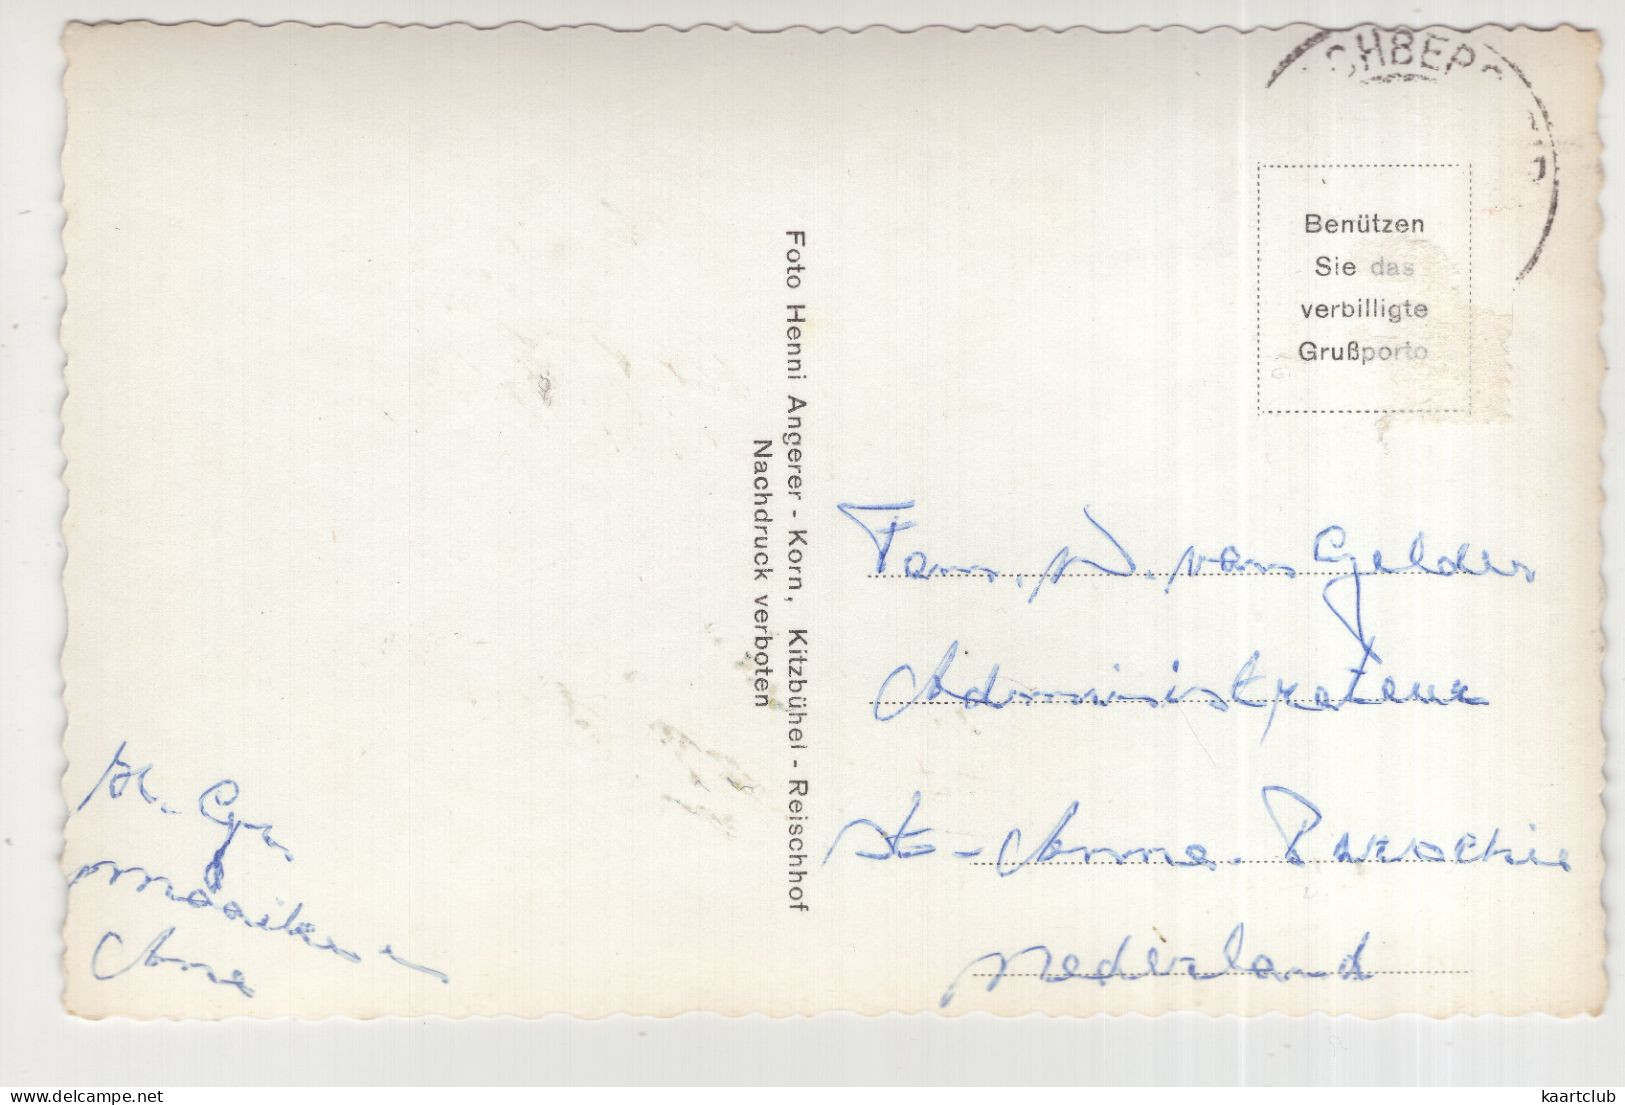 CHBER
Benützen
Sie das
verbilligte
Grußporto
Foto Henni Angerer - Korn, Kitzbühel - Reischhof
Nachdruck verboten
Fam. W. van Gelder
Administrateur
St. Anna Parochie
Nederland
Maaike en
Ane
delcampe.net
kaartclub